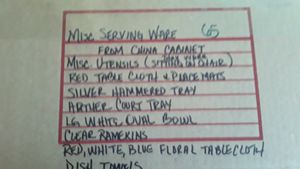 MISC SERVING WARE 65
FROM CHINA CABINET
MISC. UTENSILS (SITTING ON CHAIR)
RED TABLE CLOTH & PLACE MATS
SILVER HAMMERED TRAY
ARTHUR COURT TRAY
LG WHITE OVAL BOWL
CLEAR RAMEKINS
RED, WHITE, BLUE FLORAL TABLECLOTH
DISH TOWELS